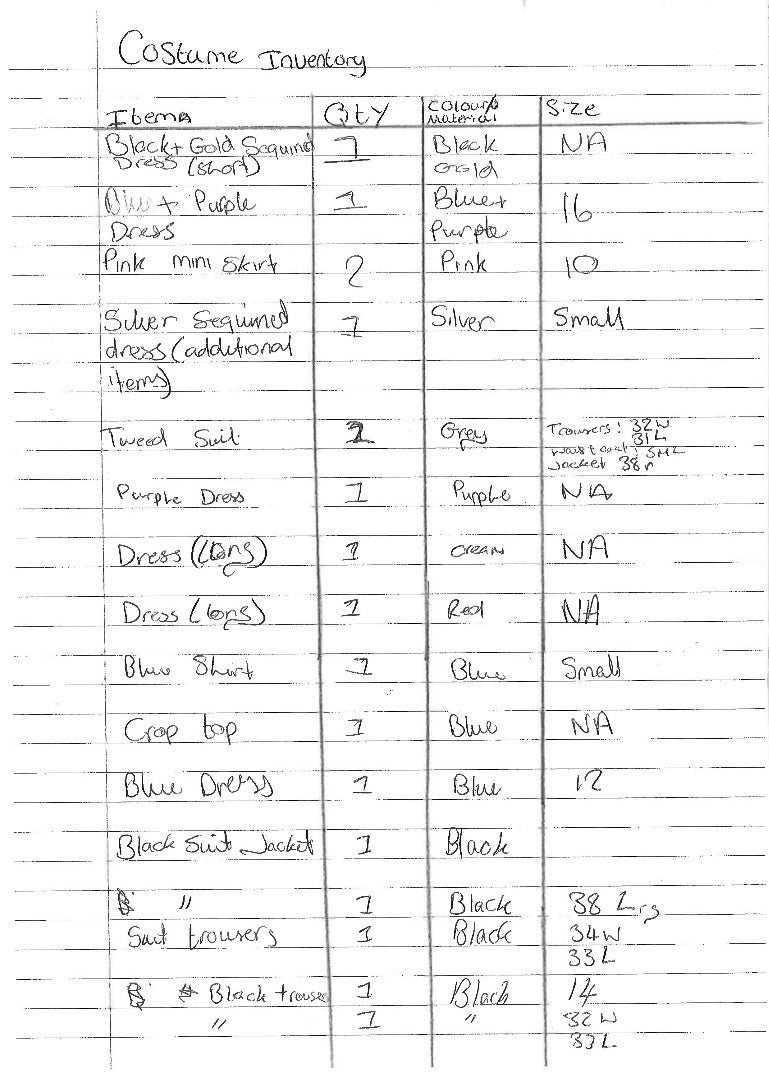 Costume Inventory
Items Qty Colour/ Material Size
Black + Gold Sequined Dress (short) 1 Black Gold NA
Blue + Purple Dress 1 Blue + Purple 16
Pink mini skirt 2 Pink 10
Silver Sequined dress (additional items) 1 Silver Small
Tweed Suit Grey Trousers: 32W 31L Waistcoat: SML Jacket 38r
Purple Dress 1 Purple NA
Dress (long) 1 cream NA
Dress (long) 1 Red NA
Blue Shirt 1 Blue Small
Crop top 1 Blue NA
Blue Dress 1 Blue 12
Black Suit Jacket 1 Black
" 1 Black 38 Lrg
Suit trousers 1 Black 34W 33L
Black trouser 1 Black 14
" 1 " 32W 33L